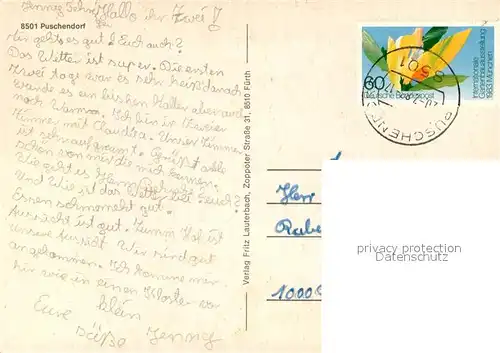 Jenny
Hallo ihr Zwei!
8501 Puschendorf
Mir geht es gut & Euch auch?
Das Wetter ist super. Die ersten
Zwei tage war es sehr heiß danach
wurde es ein bißchen kälter aber auch
noch warm. Ich bin in
Zimmer mit Claudia. Unser Zimmer
ist sehr Grüßt alle
schön von mir die mich kennen.
Wie geht es
Und Wie ist das Wetter bei Euch?
Essen schmeckt gut.
Aussicht ist gut. Zumm Hof ist
unsere Aussicht. Wir sind gut
angekommen. Ich komme mir
hir wie in einen Kloster vor
Eure klein
süße Jenny
Verlag Fritz Lauterbach, Zoppoter Straße 31, 8510 Fürth
60
Deutsche Bundespost
Internationale
Gartenbauausstellung
1983 München
8501
PUSCHENDORF
Herr
1000
privacy protection
Datenschutz